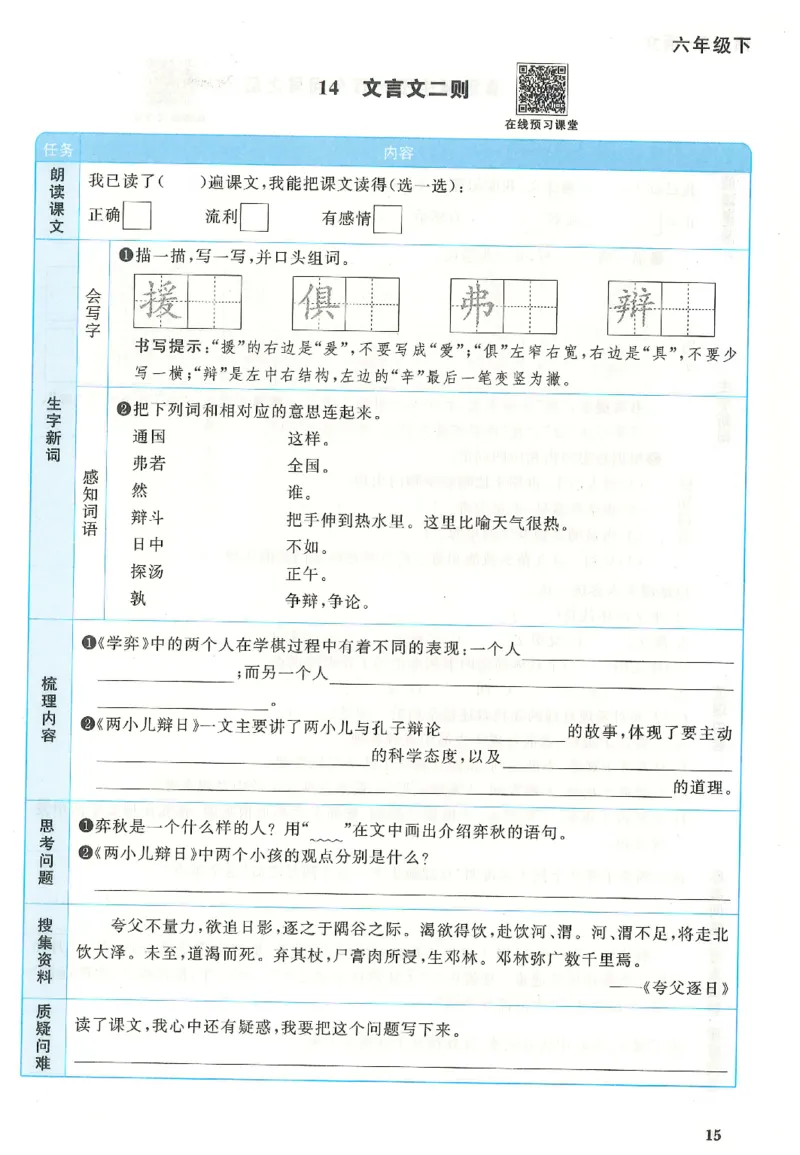 六年级下
14 文言文二则
在线预习课堂
任务 内容
朗读课文
我已读了( )遍课文,我能把课文读得(选一选):
正确 流利 有感情
生字新词
会写字
❶描一描,写一写,并口头组词。
援 俱 弗 辩
书写提示:“援”的右边是“爰”,不要写成“爱”;“俱”左窄右宽,右边是“具”,不要少
写一横;“辩”是左中右结构,左边的“辛”最后一笔变竖为撇。
感知词语
❷把下列词和相对应的意思连起来。
通国 这样。
弗若 全国。
然 谁。
辩斗 把手伸到热水里。这里比喻天气很热。
日中 不如。
探汤 正午。
孰 争辩,争论。
梳理内容
❶《学弈》中的两个人在学棋过程中有着不同的表现:一个人
;而另一个人
。
❷《两小儿辩日》一文主要讲了两小儿与孔子辩论 的故事,体现了要主动
的科学态度,以及
的道理。
思考问题
❶弈秋是一个什么样的人?用“ ”在文中画出介绍弈秋的语句。
❷《两小儿辩日》中两个小孩的观点分别是什么?
搜集资料
夸父不量力,欲追日影,逐之于隅谷之际。渴欲得饮,赴饮河、渭。河、渭不足,将走北
饮大泽。未至,道渴而死。弃其杖,尸膏肉所浸,生邓林。邓林弥广数千里焉。
——《夸父逐日》
质疑问难
读了课文,我心中还有疑惑,我要把这个问题写下来。
15